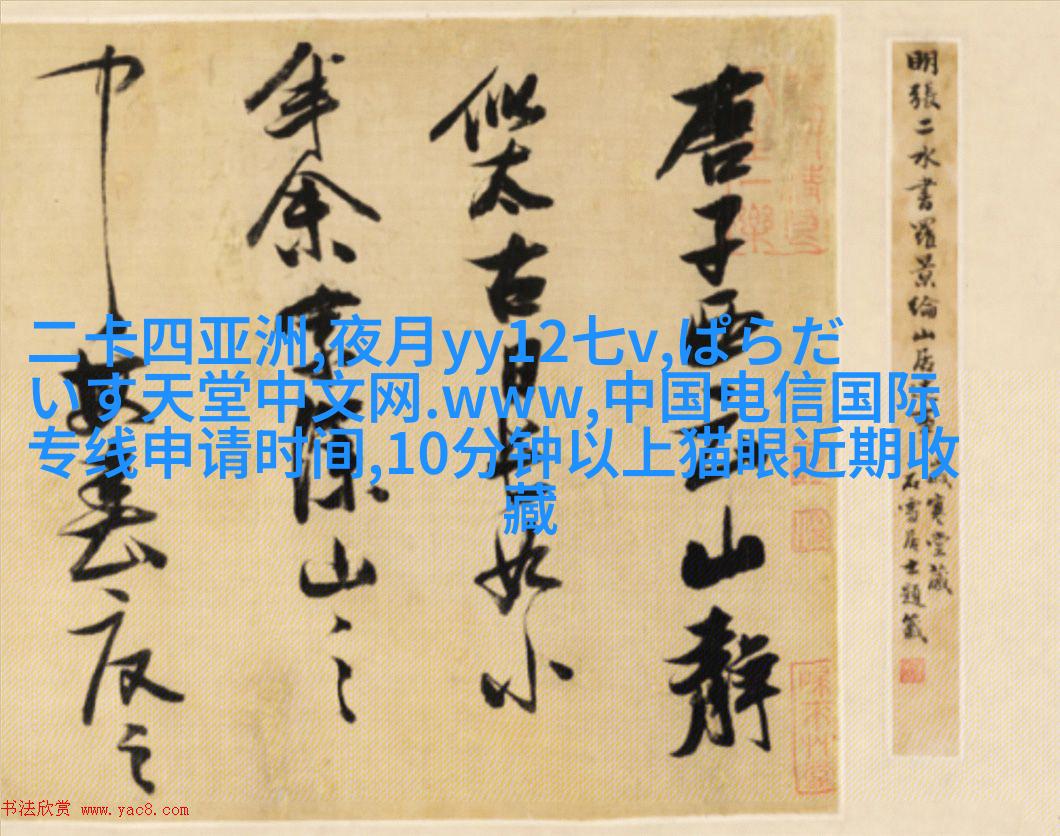 唐子西云山靜
似太古日長如小
年余家深山之
中每春夏之
明張二水書羅景綸山居
寒堂藏
石雪居士題籤
二卡四亚洲,夜月yy12七v,ぱらだ
いす天堂中文网.www,中国电信国际
专线申请时间,10分钟以上猫眼近期收
藏
书法欣赏 www.yac8.com